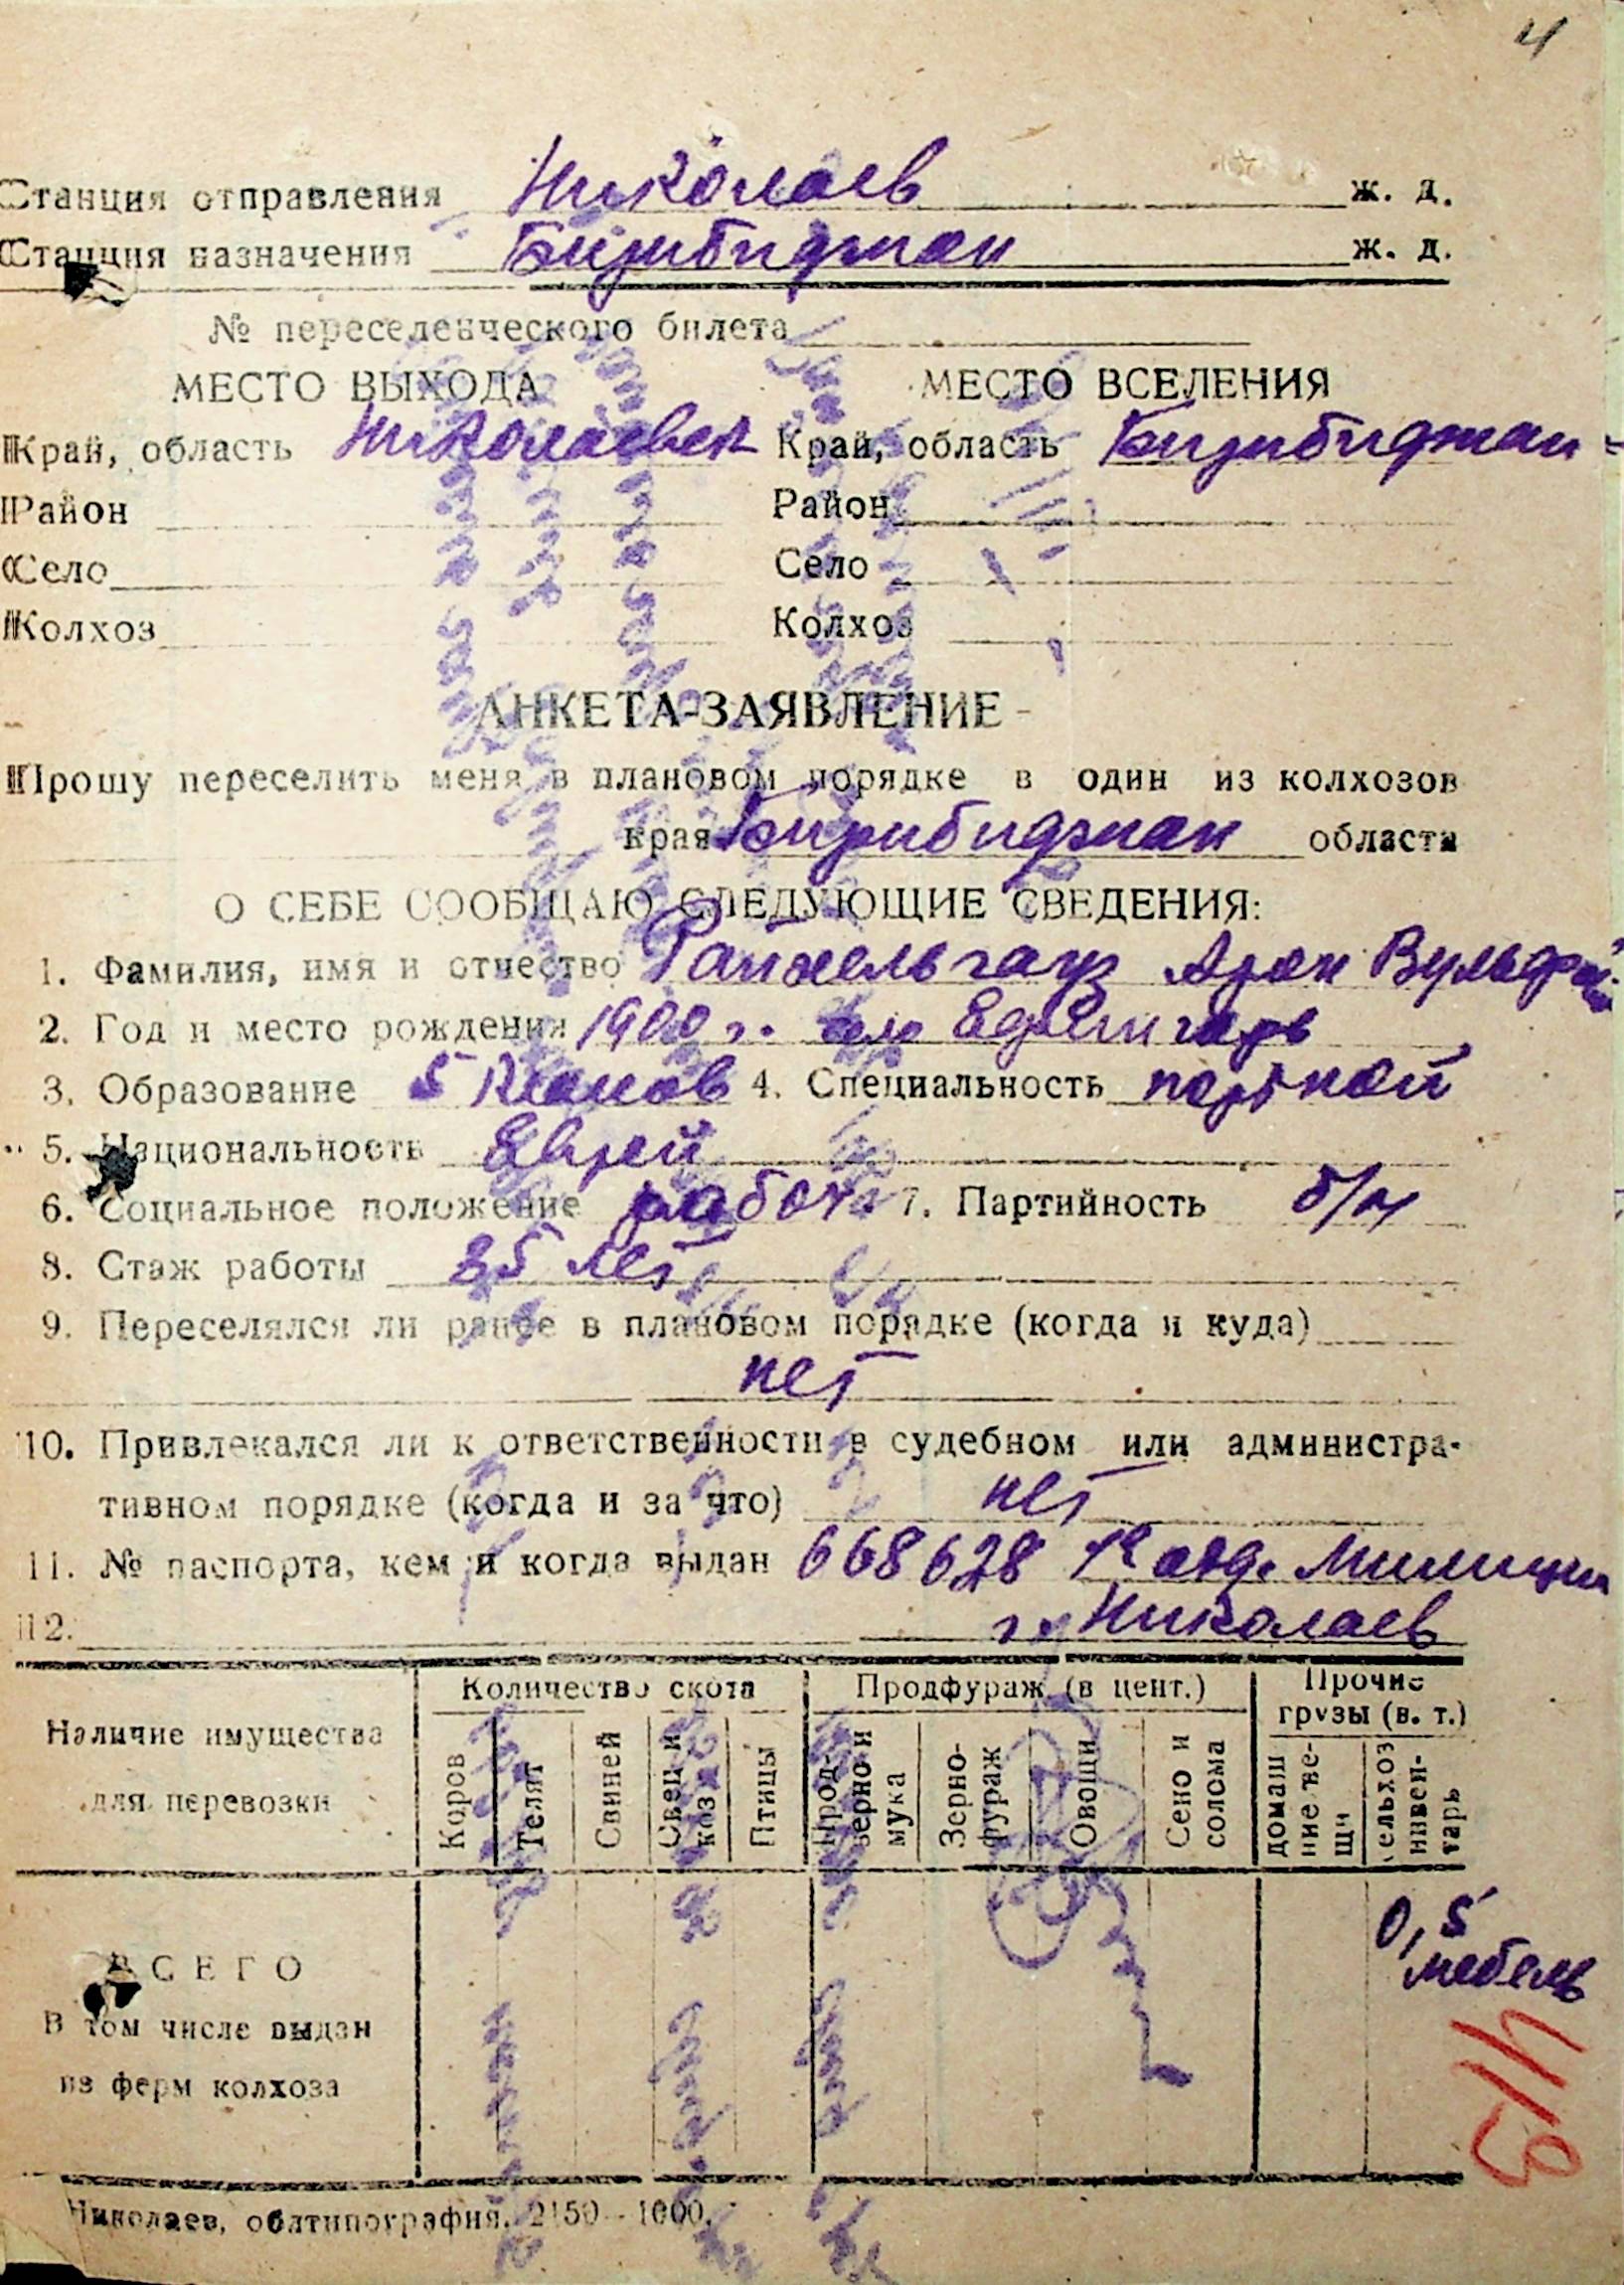 4
Станция отправления Николаев ж. д.
Станция назначения Биробиджан ж. д.
№ переселенческого билета
МЕСТО ВЫХОДА МЕСТО ВСЕЛЕНИЯ
Край, область Николаевск Край, область Биробиджан
Район Район
Село Село
Колхоз Колхоз
АНКЕТА-ЗАЯВЛЕНИЕ
Прошу переселить меня в плановом порядке в один из колхозов
края Биробиджан области
О СЕБЕ СООБЩАЮ СЛЕДУЮЩИЕ СВЕДЕНИЯ:
1. Фамилия, имя и отчество Арон Вульфов.
2. Год и место рождения 1900 г.
3. Образование 5 классов 4. Специальность портной
5. Национальность Еврей
6. Социальное положение рабоч. 7. Партийность б/п
8. Стаж работы 35 лет
9. Переселялся ли ранее в плановом порядке (когда и куда)
нет
10. Привлекался ли к ответственности в судебном или администра-
тивном порядке (когда и за что) нет
11. № паспорта, кем и когда выдан 668628 1е отд. Милиции
12. г. Николаев
Количество скота Продфураж (в цент.) Прочие грузы (в. т.)
Наличие имущества для перевозки
Коров Телят Свиней Овец и коза Птицы Прод-зерно и мука Зерно-фураж Овощи Сено и солома домаш ние ве-щи сельхоз инвен-тарь
0,5
ВСЕГО мебель
В том числе выдан
из ферм колхоза
Николаев, облтипография. 2150—1000.